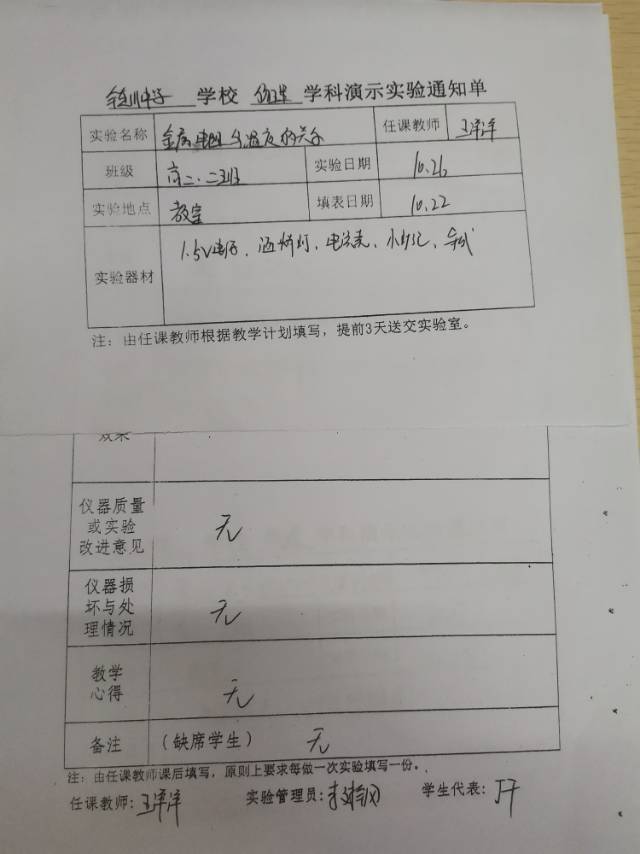 学校 物理 学科演示实验通知单
实验名称 金属电阻与温度的关系 任课教师 王洋洋
班级 高二.二班 实验日期 10.26
实验地点 教室 填表日期 10.22
实验器材 1.5V电源、酒精灯、电流表、小灯泡、导线
注：由任课教师根据教学计划填写，提前3天送交实验室。
效果
仪器质量
或实验
改进意见 无
仪器损
坏与处
理情况 无
教学
心得 无
备注 (缺席学生) 无
注：由任课教师课后填写，原则上要求每做一次实验填写一份。
任课教师：王洋洋 实验管理员： 学生代表：